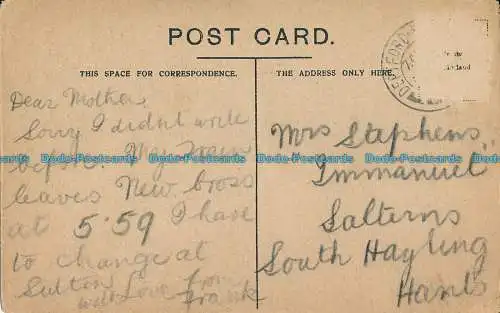 POST CARD.
THIS SPACE FOR CORRESPONDENCE.
Dear Mother,
Sorry I didnt write
before. My train
leaves New Cross
at 5.59 I have
to change at
Sutton
with Love from
Frank
THE ADDRESS ONLY HERE.
Mrs Stephens,
Immanuel
Salterns
South Hayling
Hants
DEPTFORD
Dodo-Postcards Dodo-Postcards Dodo-Postcards Dodo-Postcards Dodo-Postcards Dodo-Postcards